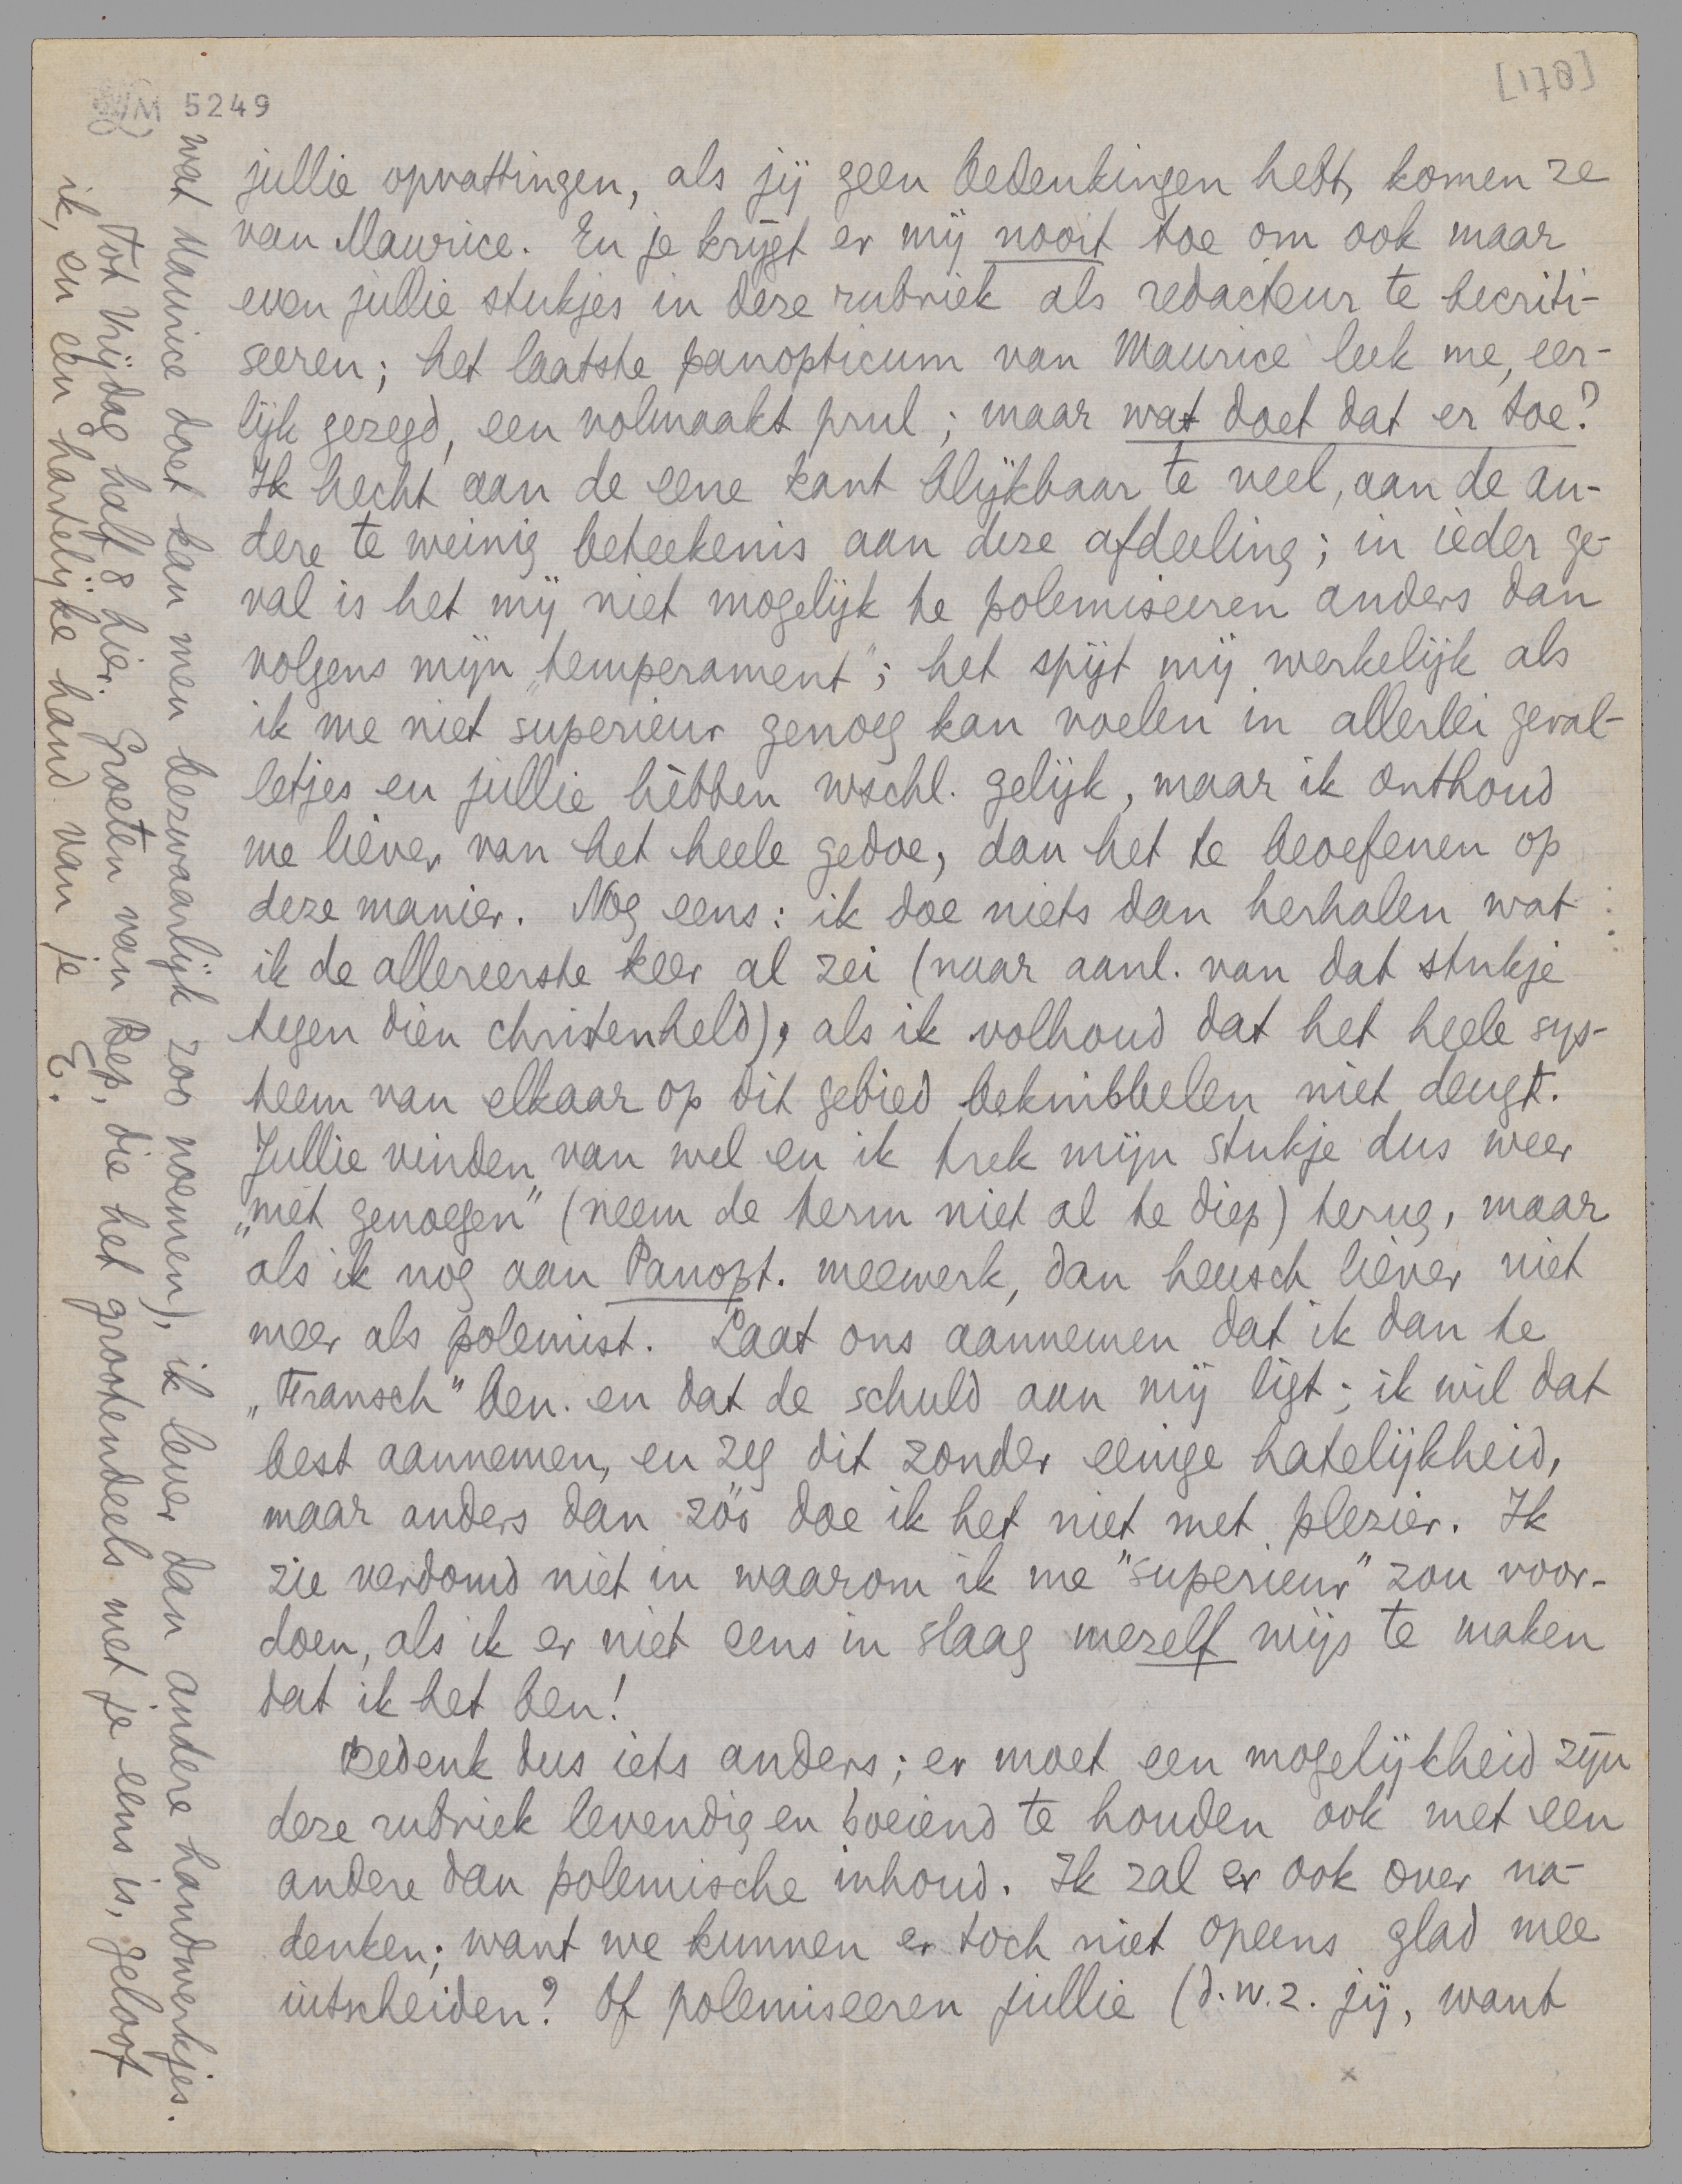 [178]
LM 5249
jullie opvattingen, als jij geen bedenkingen hebt, komen ze
van Maurice. En je krijgt er mij nooit toe om ook maar
even jullie stukjes in deze rubriek als redacteur te becriti-
seeren; het laatste panopticum van Maurice leek me, eer-
lijk gezegd, een volmaakt prul; maar wat doet dat er toe?
Ik hecht aan de eene kant blijkbaar te veel, aan de an-
dere te weinig beteekenis aan deze afdeeling; in ieder ge-
val is het mij niet mogelijk te polemiseeren anders dan
volgens mijn „temperament”; het spijt mij werkelijk als
ik me niet superieur genoeg kan voelen in allerlei geval-
letjes en jullie hèbben wschl. gelijk, maar ik onthoud
me liéver van het heele gedoe, dan het te beoefenen op
deze manier. Nog eens: ik doe niets dan herhalen wat
ik de allereerste keer al zei (naar aanl. van dat stukje
tegen dien christenheld), als ik volhoud dat het heele sys-
teem van elkaar op dit gebied beknibbelen niet deugt.
Jullie vinden van wel en ik trek mijn stukje dus weer
„mét genoegen” (neem de term niet al te diep) terug, maar
als ik nog aan Panopt. meewerk, dan heusch liéver niet
meer als polemist. Laat ons aannemen dat ik dan te
„Fransch” ben en dat de schuld aan mij ligt; ik wil dat
best aannemen, en zeg dit zonder eenige hatelijkheid,
maar anders dan zóó doe ik het niet met plezier. Ik
zie verdomd niet in waarom ik me "superieur" zou voor-
doen, als ik er niet eens in slaag mezelf wijs te maken
dat ik het ben!
Bedenk dus iets anders; er moet een mogelijkheid zijn
deze rubriek levendig en boeiend te houden ook met een
andere dan polemische inhoud. Ik zal er ook over na-
denken; want we kunnen er toch niet opeens glad mee
uitscheiden? Of polemiseeren jullie (d.w.z. jij, want
wat Maurice doet kan men bezwaarlijk zoo noemen), ik lever dan andere handwerkjes.
Tot Vrijdag half 8 hier. Groeten van Bep, die het grootendeels met je eens is, geloof
ik, en een hartelijke hand van je E.